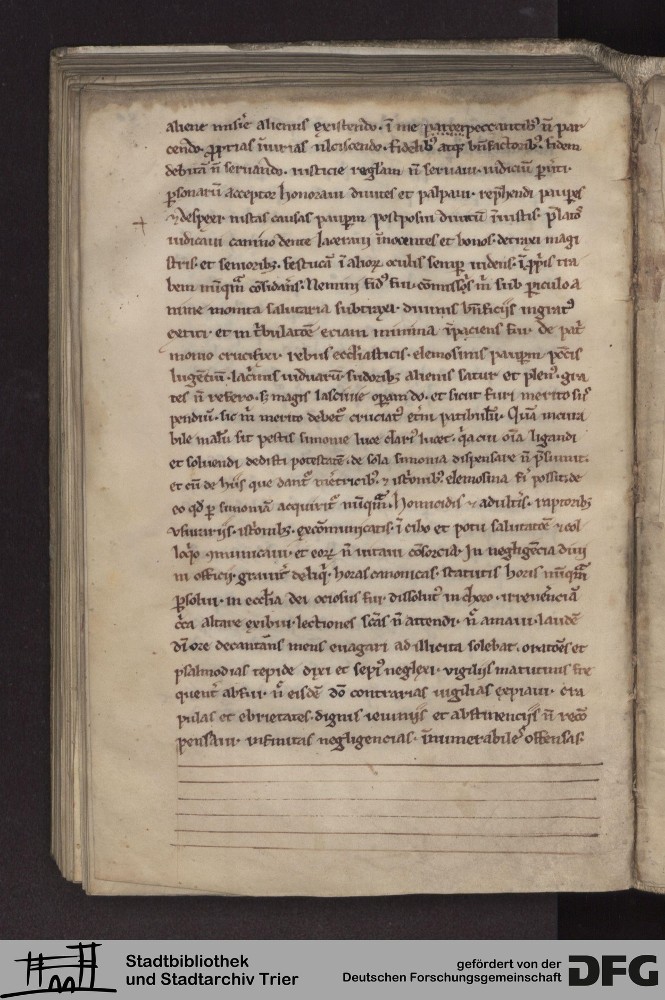 aliene misie alienus existendo. ī me peccantibꝰ n̄ par
cendo. ꝓprias iniurias ulciscendo. fidelibꝰ atqꝫ bn̄factoribꝰ. fidem
debitā n̄ seruando. iusticie reglam n̄ seruaui. iudiciū
ꝑsonarū acceptor honoraui diuites et palpaui. rep̄hendi paupes
⁊ despexi iustas causas paupum postposui diuitū iniustis. p̄latos
iudicaui canino dente laceraui īnocentes et bonos. detraxi magi
stris. et senioribꝫ. festucā ī alioꝝ oculis semꝑ uidens. ī ꝓpriis tra
bem nūq̄m cōsiderās. Nemini fidꝰ fui. sub periculo a
nime monita salutaria subtraxi. diuinis bn̄ficijs ingratꝰ
extiti. et in t̄bulatōe eciam minima īpaciens fui. de pat̄
monio crucifixi. rebus eccl̄iasticis. elemosinis paupum pctīs
lugenciū. lacrimis uiduarū. sudoribꝫ alienis satur et plenꝰ. gra
tes n̄ refero. sꝫ magis lasciuie operam do. et sicut furi merito sus
pendiū. sic m̄ merito debetꝰ cruciatꝰ et̄ni patibulū. Quā incura
bile malū sit pestis simonie luce clariꝰ lucet. q̄a cui om̄ia ligandi
et soluendi dedisti potestatē. de sola simonia dispensare n̄ p̄sumit.
et cū de hijs que dant̄ meretricibꝰ. ⁊ istrionibꝰ. elemosina fi possit. de
eo qd̄ ꝑ simoniā acquirit̄ nūq̄m. Homicidis ⁊ adultis. raptoribꝫ
vsurarijs. istrionibꝫ. excōmunicatis. ī cibo et potu salutatōe ⁊ col
loq̄io ꝯmunicaui. et eoꝝ n̄ uitaui cōsorcia. In negligēcia diui
ni officij. grauit̄ deliq̄. horas canonicas. statutis horis nūq̄m
ꝑsolui. in eccl̄ia dei ociosus fui. dissolutꝰ in choro. irreuerēciā
c̄ca altare exibui. lectiones sc̄as n̄ attendi. n̄ amaui. laudē
dī ore decantans mens euagari ad illicita solebat. oratōes et
psalmodias tepide dixi et sepiꝰ neglexi. vigilijs matutinis fre
quent̄ abfui. n̄ eisdē dō contrarias uigilias expiaui. cra
pulas et ebrietates. dignis ieiunijs et abstinencijs n̄ recō
pensaui. infinitas negligencias. īnumerabiles offensas.
Stadtbibliothek
und Stadtarchiv Trier
gefördert von der
Deutschen Forschungsgemeinschaft
DFG